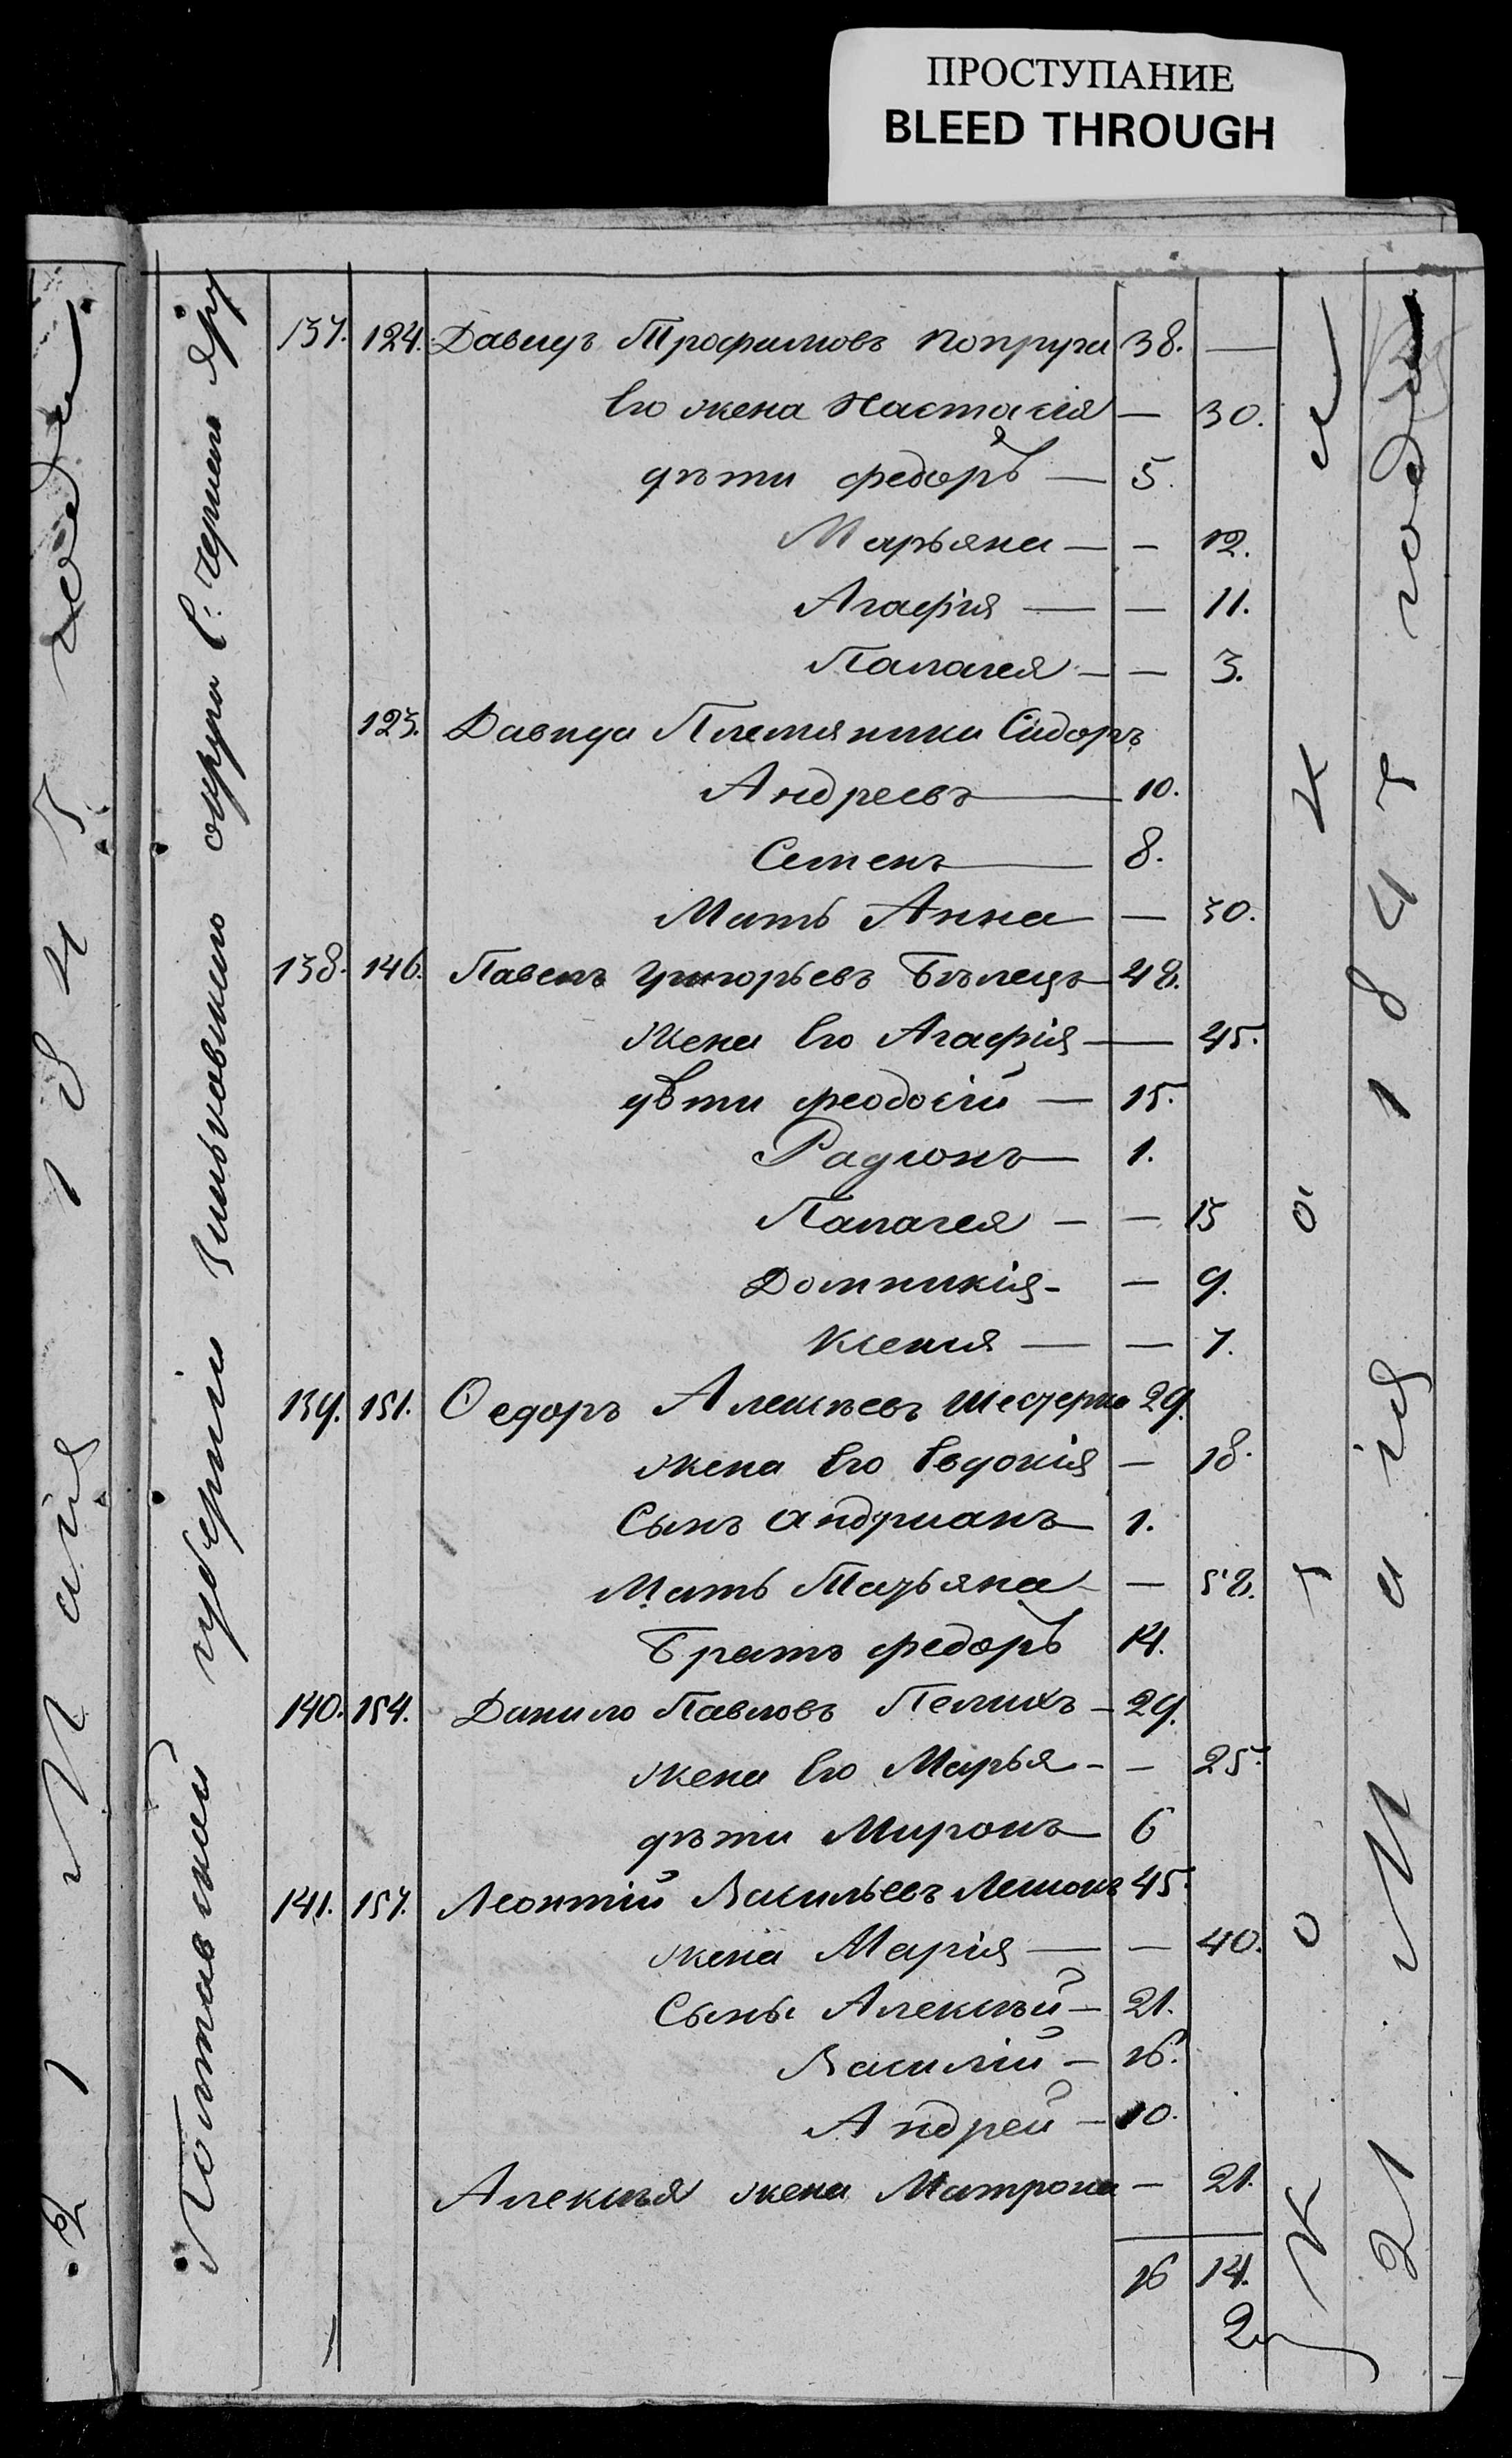 ПРОСТУПАНИЕ
BLEED THROUGH
21 Мая 1845 года
Полтавской губерніи Зиньковскаго округа С:
137. 124. Давидъ Трофимовъ Попруга 38. —
Его жена Настасія — 30.
дѣти Федоръ — 5.
Марьяна — — 12.
Агафія — — 11.
Палагея — — 3.
125. Давида Племяники Сидоръ
Андреевъ — 10.
Семенъ — 8.
Мать Анна — 30.
138. 146. Павелъ Григорьевъ Бѣлецъ 48.
Жена Его Агафія — 45.
дѣти Феодосій — 15.
Радіонъ — 1.
Палагея — — 15
Домникія - — 9.
Ксенія — — 7.
139. 151. Ѳедоръ Алексѣевъ Шестерня 29.
жена Его Евдокія — 18.
Сынъ Андріанъ — 1.
Мать Татьяна - — 58.
Братъ Федоръ 14.
140. 154. Данило Павловъ Пелихъ - 29.
жена Его Марья - - 25.
дѣти Миронъ — 6
141. 157. Леонтій Васильевъ 45.
жена Марія — — 40.
Сыны Алексѣй — 21.
Василій — 16.
Андрей — 10.
Алексѣя жена Матрона — 21.
16 14.
21 Мая 1845 года